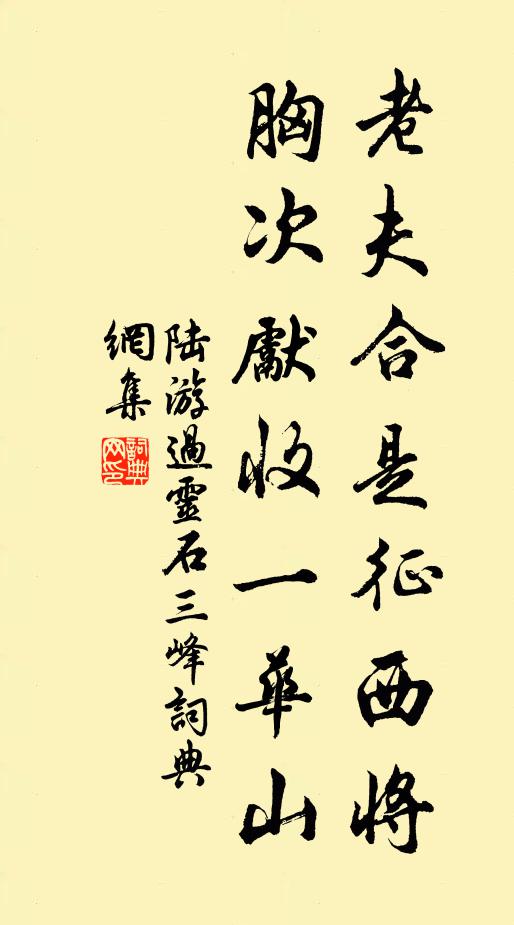 老夫合是征西將
胸次獻收一華山
陸游過靈石三峰詞典
網集
詞典
网印